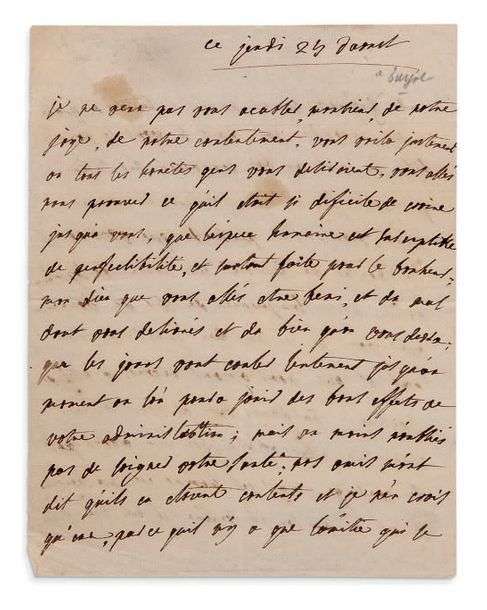 ce jeudi 25 d'aoust
je ne veux pas vous acabler, monsieur, de notre
joye, de notre contentement. vous voila justement
ou tous les honêtes gens vous desiroient. vous allés
nous prouver ce qu'il etoit si dificile de croire
jusqu'a vous, que l'espece humaine est susceptible
de perfectibilité, et surtout faite pour le bonheur.
mon dieu que vous allés etre beni, et du mal
dont vous delivrés et du bien qu'on vous devra.
que les jours vont couler lentement jusqu'au
moment ou l'on poura jouir des bons effets de
votre administration; mais au moins n'oubliés
pas de soigner votre santé. nos amis m'ont
dit qu'ils en etoient contents et je n'en crois
qu'eux, parce qu'il n'y a que l'amitié qui se